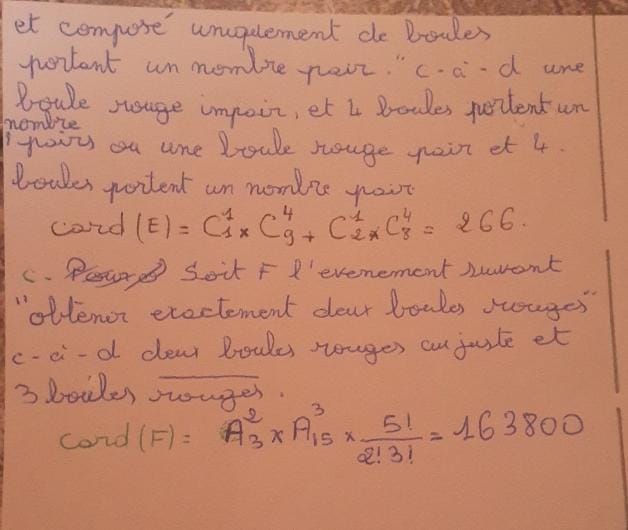 et composé uniquement de boules
portant un nombre pair." c-à-d une
boule rouge impair, et 4 boules portent un
nombre
pairs ou une boule rouge pair et 4
boules portent un nombre pair
card(E) = C¹₁ × C⁴₉ + C¹₂ × C⁴₈ = 266.
c. Soit F l'evenement suivant
"obtenir exactement deux boules rouges"
c-à-d deux boules rouges au juste et
3 boules \overline{rouges}.
card(F) = A²₃ × A³₁₅ × 5!/2!3! = 163800